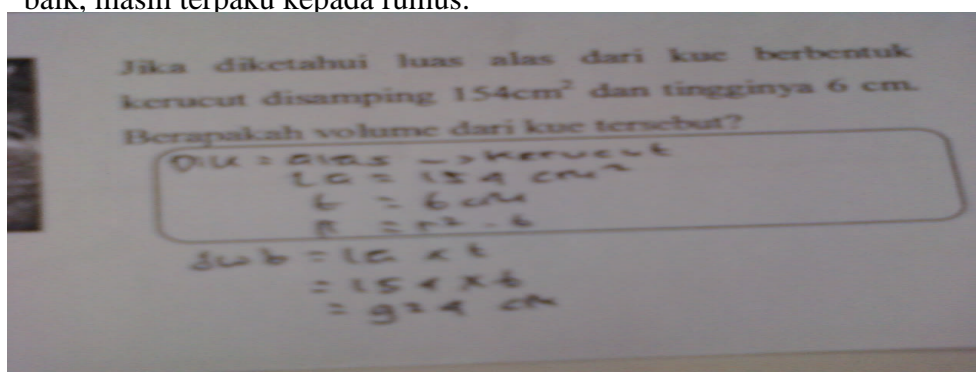 baik, masih terpaku kepada rumus.
Jika diketahui luas alas dari kue berbentuk
kerucut disamping 154cm² dan tingginya 6 cm.
Berapakah volume dari kue tersebut?
Dik = alas -> kerucut
La = 154 cm²
t = 6 cm
= r² . t
Jwb = la x t
= 154 x 6
= 924 cm